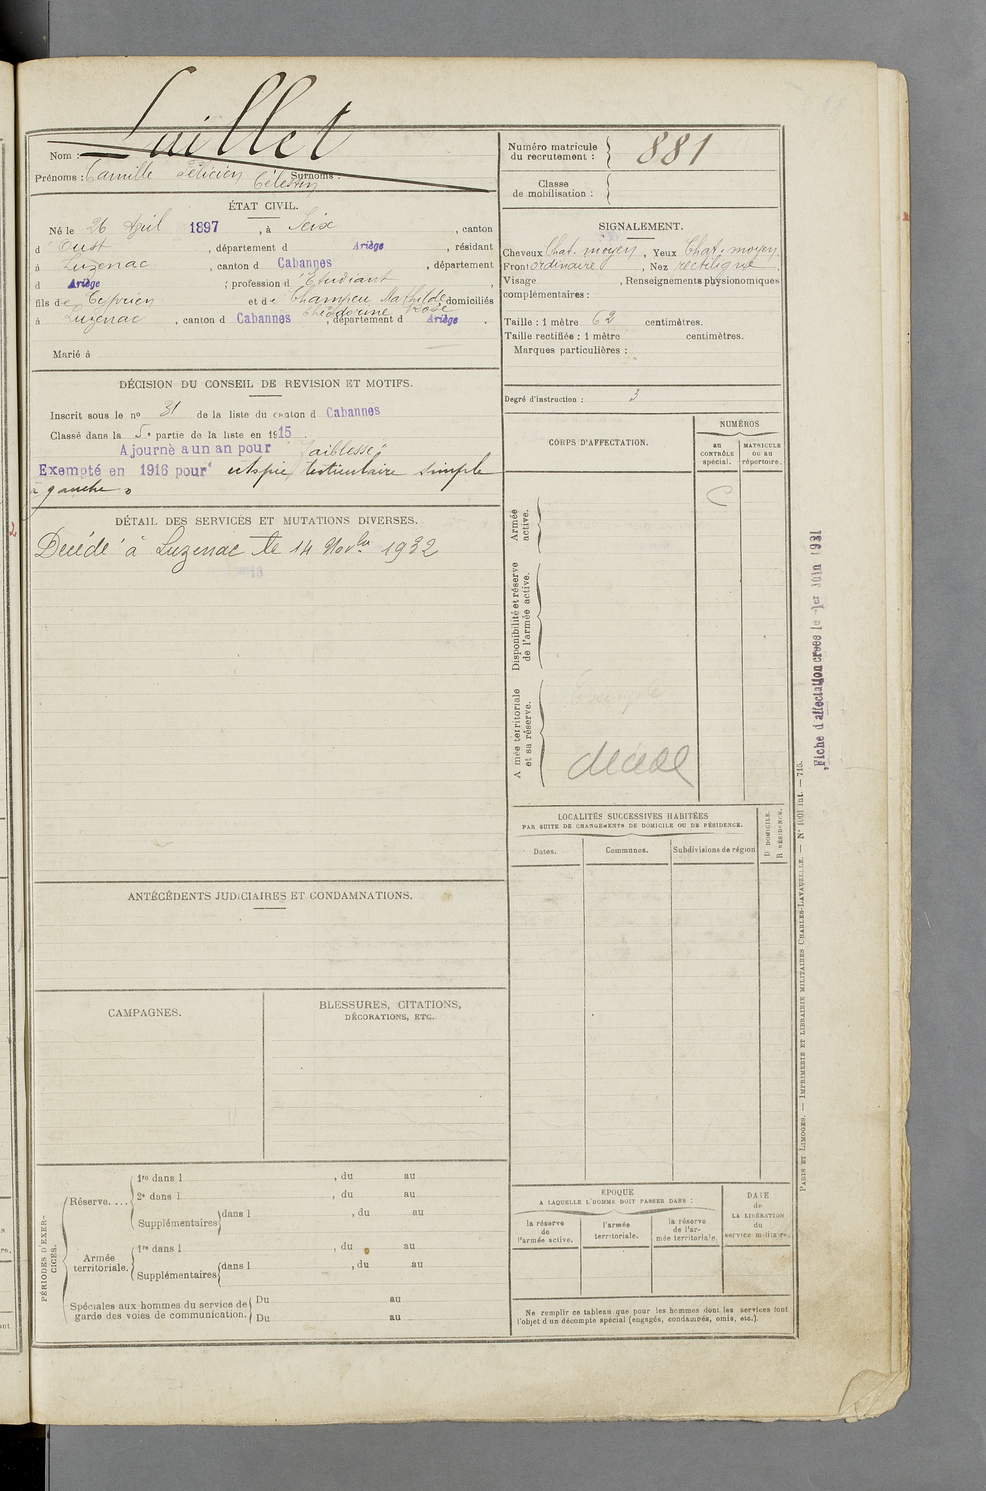 Laillet
Nom :
Prénoms : Camille Félicien Célestin Surnoms :
Numéro matricule du recrutement : 881
Classe de mobilisation :
ÉTAT CIVIL.
Né le 26 April 1897, à Seix, canton
d'Oust, département d Ariège, résidant
à Luzenac, canton d Cabannes, département
d Ariège ; profession d'Etudiant,
fils de Cyprien et de Champeu Mathilde Théodorine Rose domiciliés
à Luzenac, canton d Cabannes, département d Ariège.
Marié à
SIGNALEMENT.
Cheveux Chat. moyen, Yeux Chat. moyen
Front ordinaire, Nez rectiligne
Visage , Renseignements physionomiques
complémentaires :
Taille : 1 mètre 62 centimètres.
Taille rectifiée : 1 mètre centimètres.
Marques particulières :
Degré d'instruction : 3
DÉCISION DU CONSEIL DE REVISION ET MOTIFS.
Inscrit sous le no 31 de la liste du canton d Cabannes
Classé dans la 5e partie de la liste en 1915
Ajourné a un an pour faiblesse
Exempté en 1916 pour testiculaire simple
à gauche.
DÉTAIL DES SERVICES ET MUTATIONS DIVERSES.
Décédé à Luzenac le 14 Novbre 1932
CORPS D'AFFECTATION.
NUMÉROS
au CONTRÔLE spécial.
MATRICULE ou au répertoire.
Armée active.
C
Disponibilité et réserve de l'armée active.
Armée territoriale et sa réserve.
décédé
Fiche d'affectation créée le 1er Juin 1931
LOCALITÉS SUCCESSIVES HABITÉES
PAR SUITE DE CHANGEMENTS DE DOMICILE OU DE RÉSIDENCE.
Dates.
Communes.
Subdivisions de région
D DOMICILE.
R RÉSIDENCE.
ANTÉCÉDENTS JUDICIAIRES ET CONDAMNATIONS.
CAMPAGNES.
BLESSURES, CITATIONS,
DÉCORATIONS, ETC.
PÉRIODES D'EXERCICES.
Réserve....
1re dans l , du au
2e dans l , du au
Supplémentaires dans l , du au
Armée territoriale.
1re dans l , du au
Supplémentaires dans l , du au
Spéciales aux hommes du service de Du au
garde des voies de communication. Du au
EPOQUE
A LAQUELLE L'HOMME DOIT PASSER DANS :
la réserve de l'armée active.
l'armée territoriale.
la réserve de l'armée territoriale.
DATE de LA LIBÉRATION du service militaire.
Ne remplir ce tableau que pour les hommes dont les services font
l'objet d'un décompte spécial (engagés, condamnés, omis, etc.).
PARIS ET LIMOGES. — IMPRIMERIE ET LIBRAIRIE MILITAIRES CHARLES-LAVAUZELLE. — N° 1001 int. — 715.